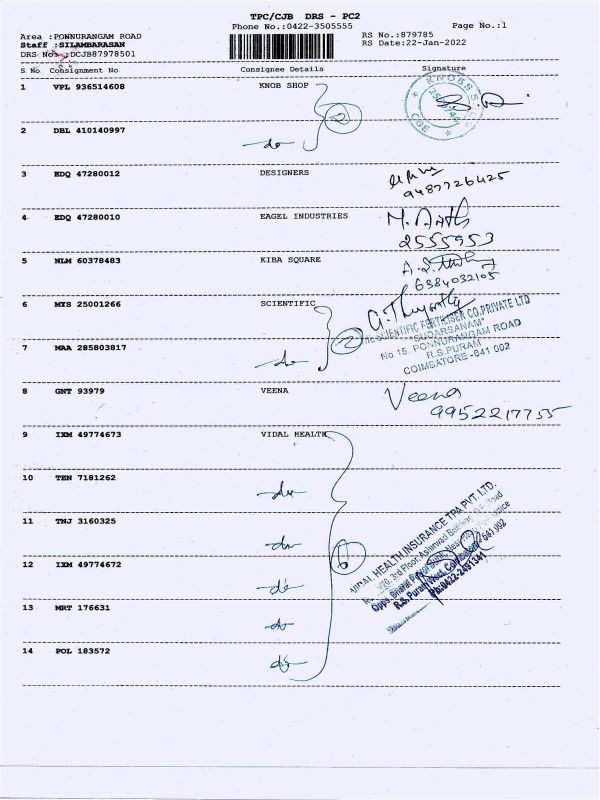 TPC/CJB DRS - PC2
Phone No.:0422-3505555
Page No.:1
Area :PONNURANGAM ROAD
Staff :SILAMBARASAN
DRS No. :DCJB87978501
RS No.:879785
RS Date:22-Jan-2022
S No Consignment No Consignee Details Signature
1 VPL 936514608 KNOB SHOP
2
2 DBL 410140997 -do-
3 EDQ 47280012 DESIGNERS
9487726425
4 EDQ 47280010 EAGEL INDUSTRIES
2555953
5 NLM 60378483 KIBA SQUARE
6384032105
6 MYS 25001266 SCIENTIFIC
2
THE SCIENTIFIC FERTILISER CO.PRIVATE LTD
"SUDARSANAM"
No 15, PONNURANGAM ROAD
R.S.PURAM
COIMBATORE -641 002
7 MAA 285803817 -do-
8 GNT 93979 VEENA Veena
9952217755
9 IXM 49774673 VIDAL HEALTH
10 TEN 7181262 -do-
11 TNJ 3160325 -do-
6
VIDAL HEALTH INSURANCE TPA PVT. LTD.
3rd Floor
R.S. Puram West, Coimbatore - 641 002
Ph:0422-2451341
12 IXM 49774672 -do-
13 MRT 176631 -do-
14 POL 183572 -do-